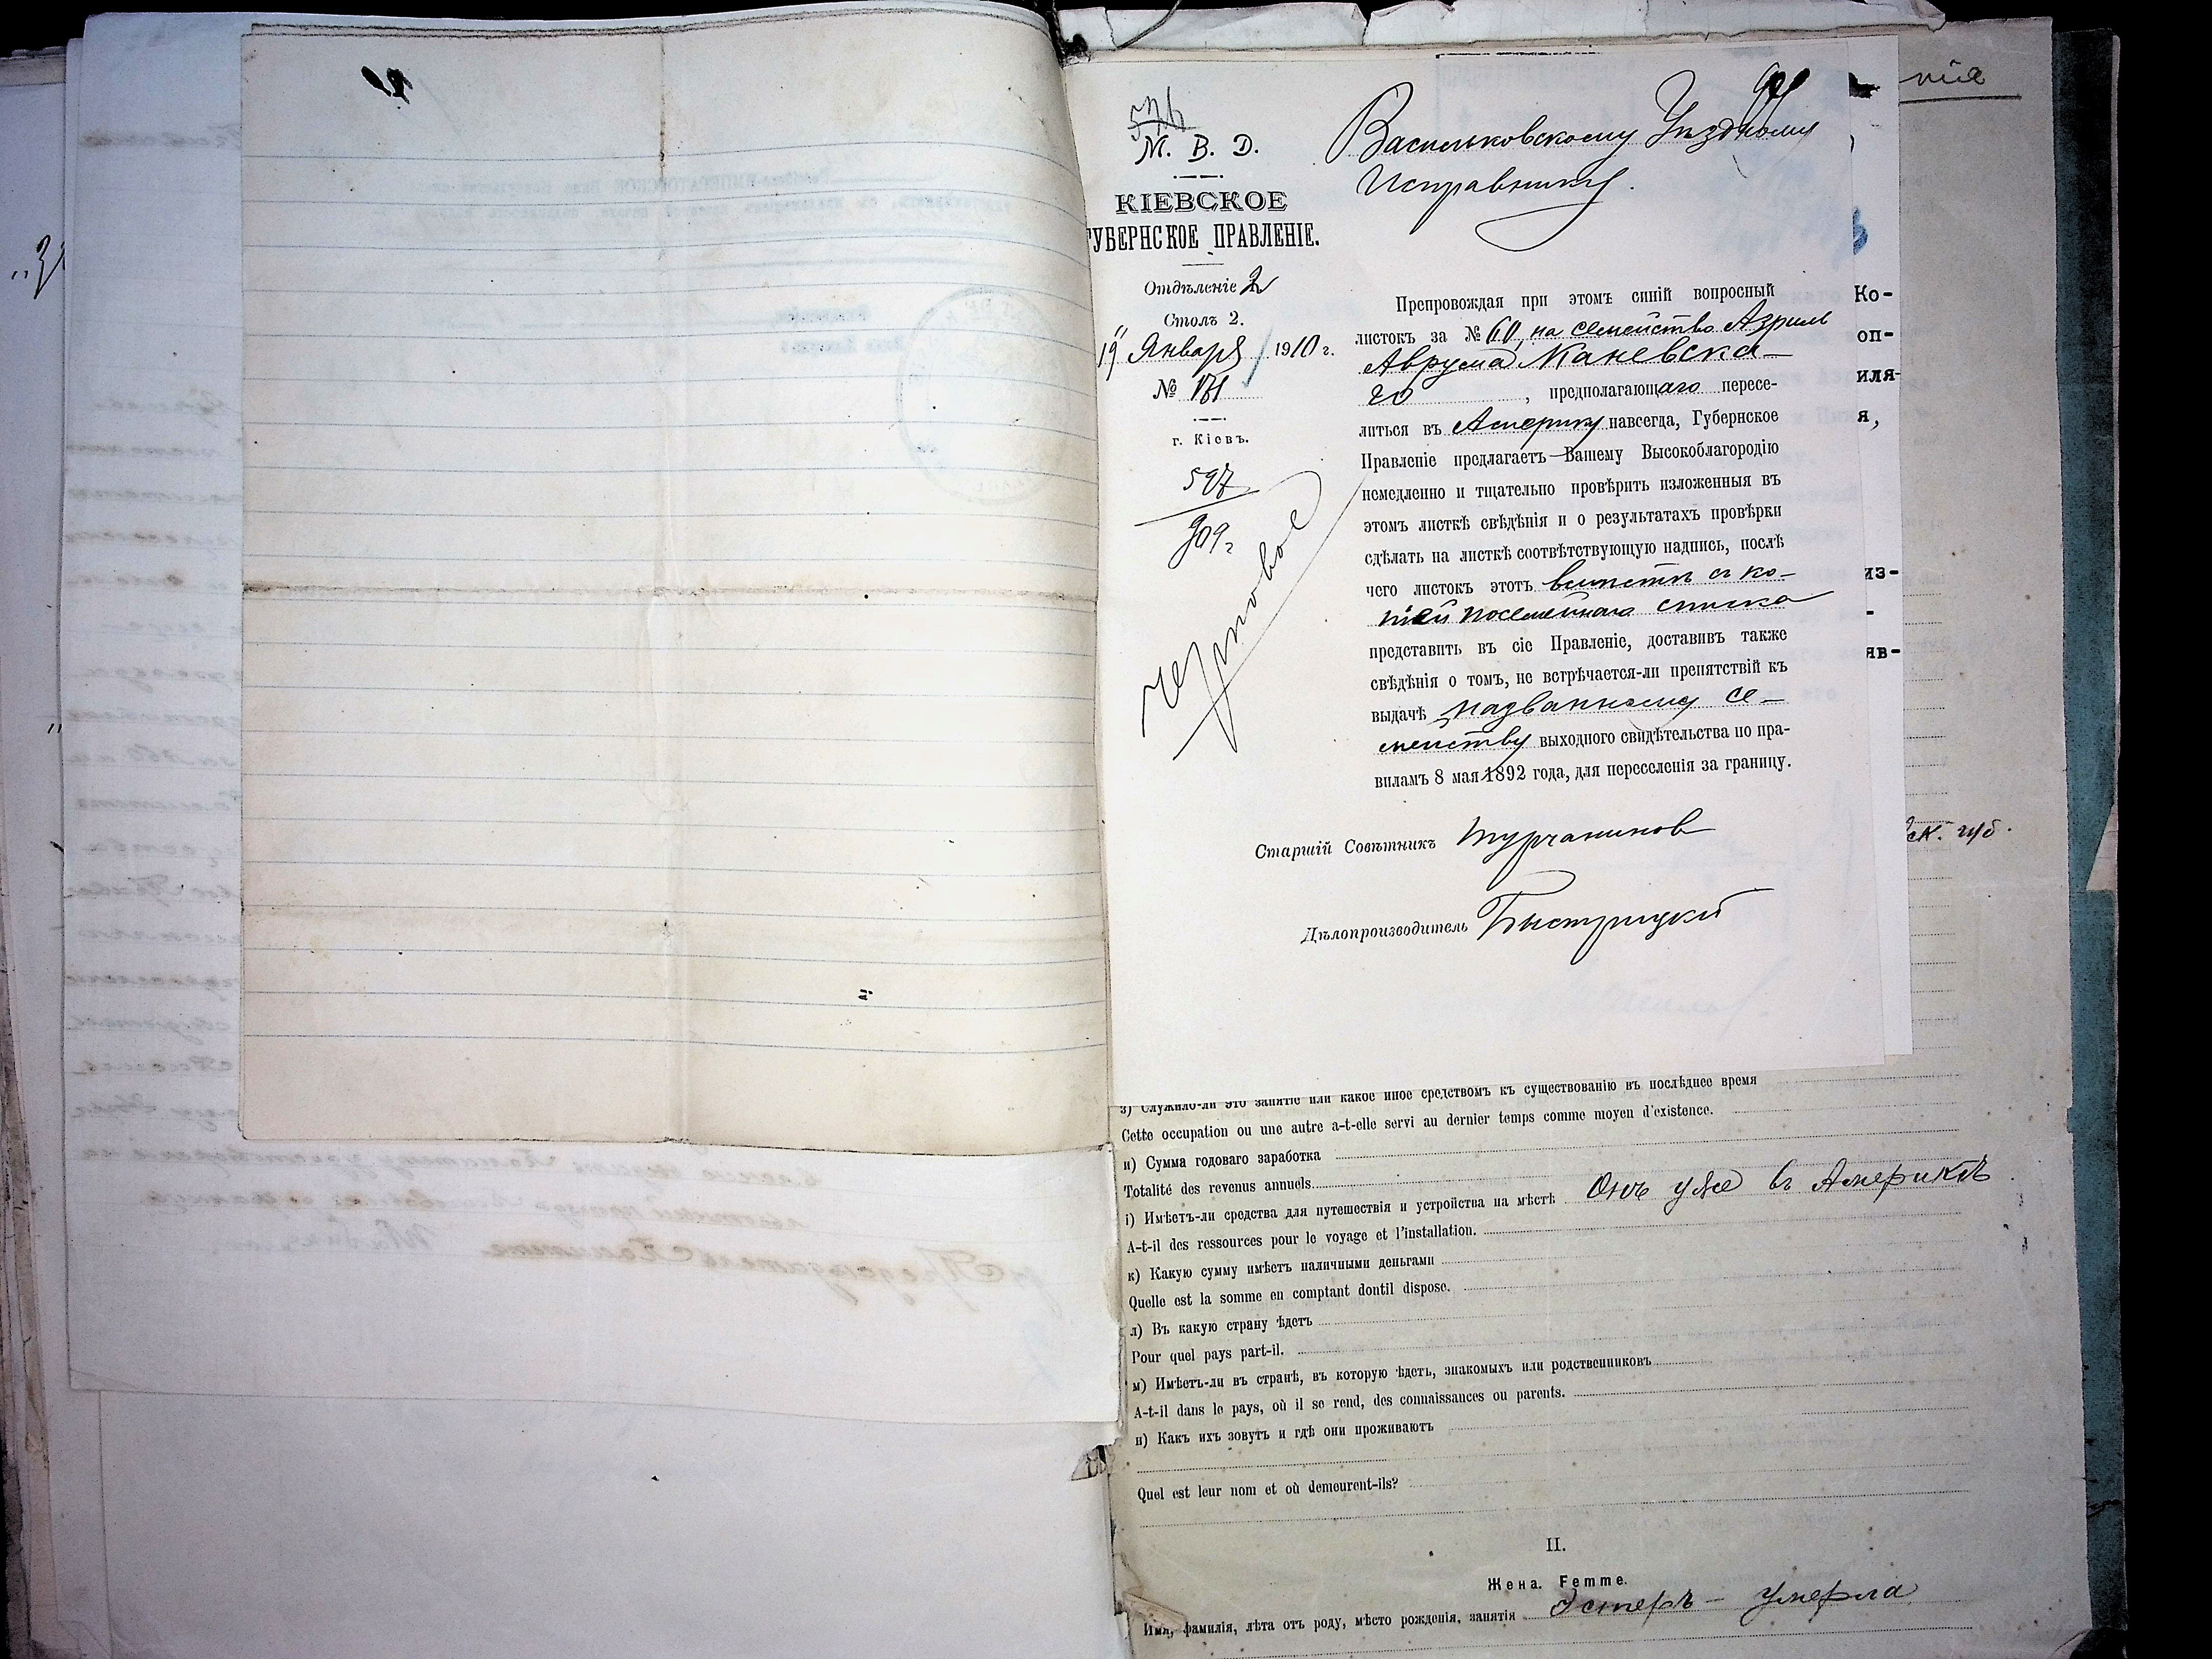 М. В. Д.
КІЕВСКОЕ
ГУБЕРНСКОЕ ПРАВЛЕНІЕ.
Отдѣленіе 2
Столъ 2.
19 Января 1910 г.
№ 181
г. Кіевъ.
597
909 г
Васильковскому Уѣздному
Исправнику.
Препровождая при этомъ синій вопросный
листокъ за № 60, на семейство Азриль
Аврума Каневска-
го, предполагающаго пересе-
литься въ Америку навсегда, Губернское
Правленіе предлагаетъ Вашему Высокоблагородію
немедленно и тщательно провѣрить изложенныя въ
этомъ листкѣ свѣдѣнія и о результатахъ провѣрки
сдѣлать на листкѣ соотвѣтствующую надпись, послѣ
чего листокъ этотъ вмѣстѣ съ ко-
піей посемейнаго списка
представить въ сіе Правленіе, доставивъ также
свѣдѣнія о томъ, не встрѣчается-ли препятствій къ
выдачѣ названному се-
мейству выходного свидѣтельства по пра-
виламъ 8 мая 1892 года, для переселенія за границу.
Старшій Совѣтникъ Турчанинов
Дѣлопроизводитель Быстрицкій
ніе
Ко-
оп-
иля-
я,
из-
-
яв-
ск. губ.
з) Служило-ли это занятіе или какое иное средствомъ къ существованію въ послѣднее время
Cette occupation ou une autre a-t-elle servi au dernier temps comme moyen d'existence.
и) Сумма годоваго заработка
Totalité des revenus annuels.
і) Имѣетъ-ли средства для путешествія и устройства на мѣстѣ Онъ уже въ Америкѣ
A-t-il des ressources pour le voyage et l'installation.
к) Какую сумму имѣетъ наличными деньгами
Quelle est la somme en comptant dontil dispose.
л) Въ какую страну ѣдетъ
Pour quel pays part-il.
м) Имѣетъ-ли въ странѣ, въ которую ѣдетъ, знакомыхъ или родственниковъ
A-t-il dans le pays, où il se rend, des connaissances ou parents.
н) Какъ ихъ зовутъ и гдѣ они проживаютъ
Quel est leur nom et où demeurent-ils?
II.
Жена. Femme.
Имя, фамилія, лѣта отъ роду, мѣсто рожденія, занятія Эстеръ - умерла